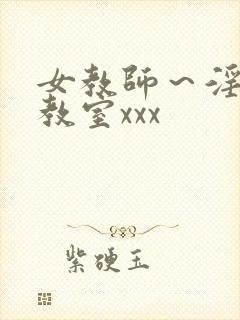 女教师～淫
教室xxx
紫硬玉